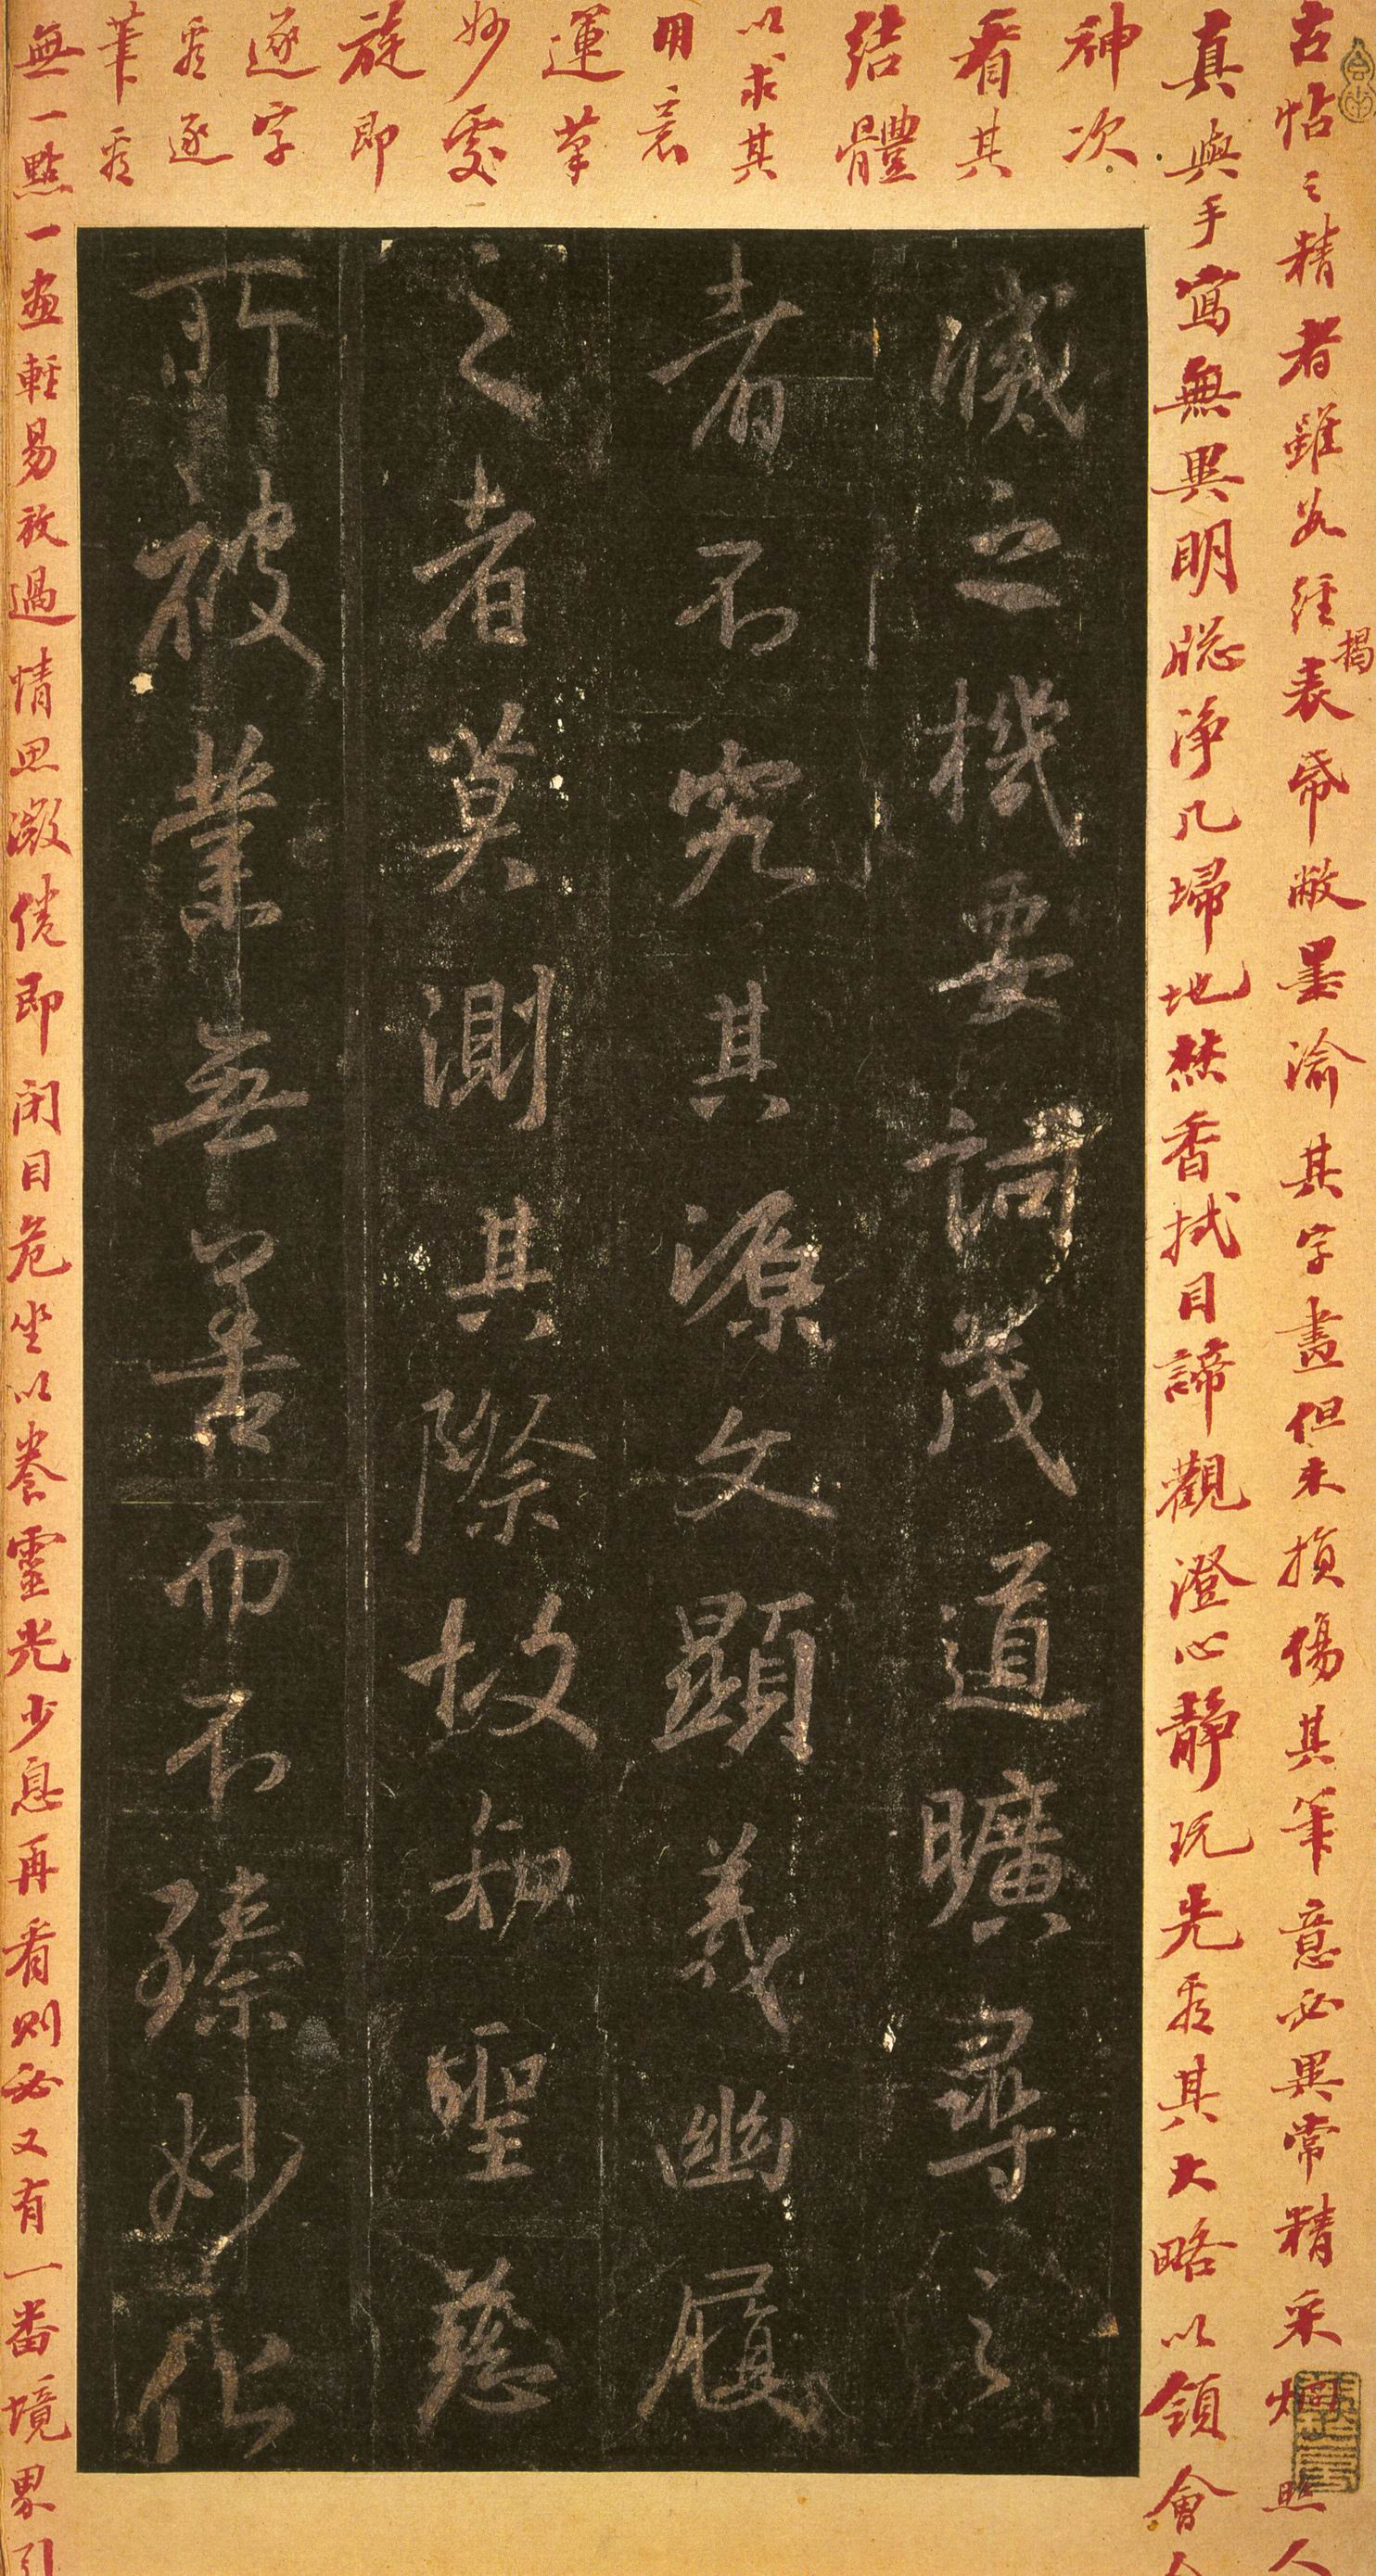 古帖之精者雖經揭表帋敝墨渝其字畫但未損傷其筆意必異常精采照人
真與手寫無異明牕淨几埽地焚香拭目諦觀澄心靜玩先看其大略以領會
神次
看其
結體
以求其
用意
運筆
妙處
旋即
逐字
看逐
筆看
無一點一畫輕易放過情思微倦即閉目危坐以養靈光少息再看則必又有一番境界引
滅之機要詞茂道曠尋之
者不究其源文顯義幽履
之者莫測其際故知聖慈
所被業無善而不臻妙化